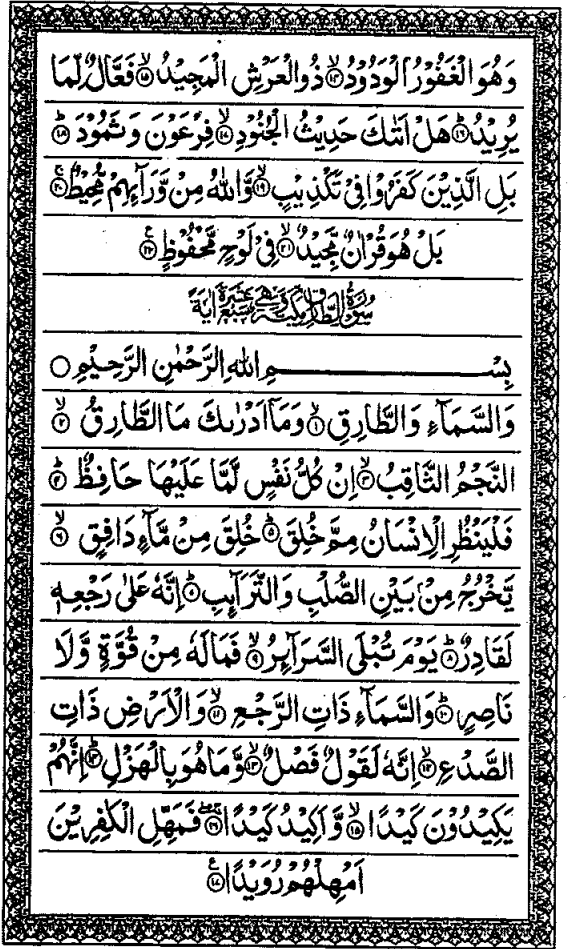 وَهُوَ الْغَفُوْرُ الْوَدُوْدُ ۙ﴿۱۴﴾ ذُو الْعَرْشِ الْمَجِيْدُ ۙ﴿۱۵﴾ فَعَّالٌ لِّمَا
يُرِيْدُ ؕ﴿۱۶﴾ هَلْ اَتٰىكَ حَدِيْثُ الْجُنُوْدِ ۙ﴿۱۷﴾ فِرْعَوْنَ وَثَمُوْدَ ؕ﴿۱۸﴾
بَلِ الَّذِيْنَ كَفَرُوْا فِيْ تَكْذِيْبٍ ۙ﴿۱۹﴾ وَّاللّٰهُ مِنْ وَّرَآئِهِمْ مُّحِيْطٌ ۚ﴿۲۰﴾
بَلْ هُوَ قُرْاٰنٌ مَّجِيْدٌ ۙ﴿۲۱﴾ فِيْ لَوْحٍ مَّحْفُوْظٍ ﴿۲۲﴾ ع
سُوْرَةُ الطَّارِقِ مَكِّيَّةٌ وَّهِيَ سَبْعَ عَشْرَةَ اٰيَةً
بِسْمِ اللّٰهِ الرَّحْمٰنِ الرَّحِيْمِ ○
وَالسَّمَآءِ وَالطَّارِقِ ۙ﴿۱﴾ وَمَآ اَدْرٰىكَ مَا الطَّارِقُ ۙ﴿۲﴾
النَّجْمُ الثَّاقِبُ ۙ﴿۳﴾ اِنْ كُلُّ نَفْسٍ لَّمَّا عَلَيْهَا حَافِظٌ ؕ﴿۴﴾
فَلْيَنْظُرِ الْاِنْسَانُ مِمَّ خُلِقَ ؕ﴿۵﴾ خُلِقَ مِنْ مَّآءٍ دَافِقٍ ۙ﴿۶﴾
يَّخْرُجُ مِنْۢ بَيْنِ الصُّلْبِ وَالتَّرَآئِبِ ؕ﴿۷﴾ اِنَّهٗ عَلٰى رَجْعِهٖ
لَقَادِرٌ ؕ﴿۸﴾ يَوْمَ تُبْلَى السَّرَآئِرُ ۙ﴿۹﴾ فَمَا لَهٗ مِنْ قُوَّةٍ وَّلَا
نَاصِرٍ ؕ﴿۱۰﴾ وَالسَّمَآءِ ذَاتِ الرَّجْعِ ۙ﴿۱۱﴾ وَالْاَرْضِ ذَاتِ
الصَّدْعِ ۙ﴿۱۲﴾ اِنَّهٗ لَقَوْلٌ فَصْلٌ ۙ﴿۱۳﴾ وَّمَا هُوَ بِالْهَزْلِ ؕ﴿۱۴﴾ اِنَّهُمْ
يَكِيْدُوْنَ كَيْدًا ۙ﴿۱۵﴾ وَّاَكِيْدُ كَيْدًا ﴿۱۶﴾ فَمَهِّلِ الْكٰفِرِيْنَ
اَمْهِلْهُمْ رُوَيْدًا ﴿۱۷﴾ ع